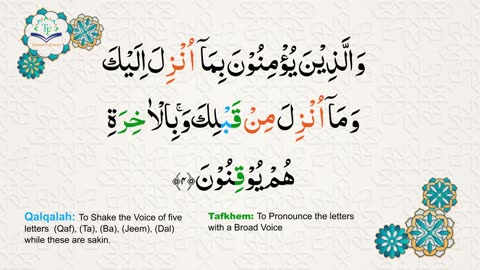 TF
وَالَّذِيْنَ يُؤْمِنُوْنَ بِمَآ اُنْزِلَ اِلَيْكَ
وَمَآ اُنْزِلَ مِنْ قَبْلِكَ ۚ وَبِالْاٰخِرَةِ
هُمْ يُوْقِنُوْنَ ﴿۴﴾
Qalqalah: To Shake the Voice of five
letters (Qaf), (Ta), (Ba), (Jeem), (Dal)
while these are sakin.
Tafkhem: To Pronounce the letters
with a Broad Voice